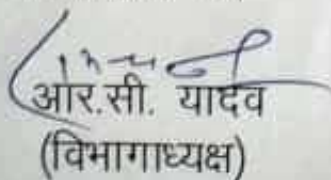 आर.सी. यादव
(विभागाध्यक्ष)